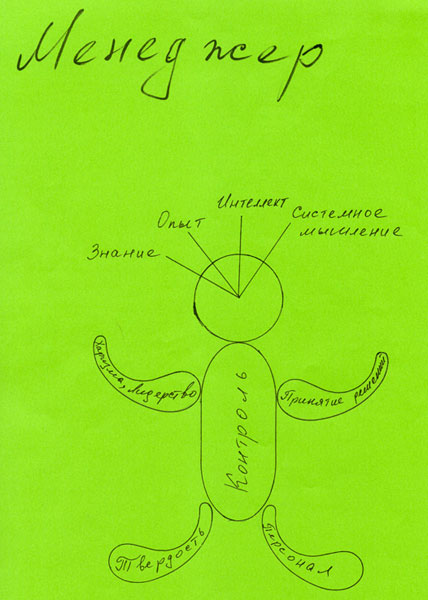 Менеджер
Интеллект
Опыт
Системное
мышление
Знание
Харизма, Лидерство
Принятие решений
Контроль
Твердость
Персонал